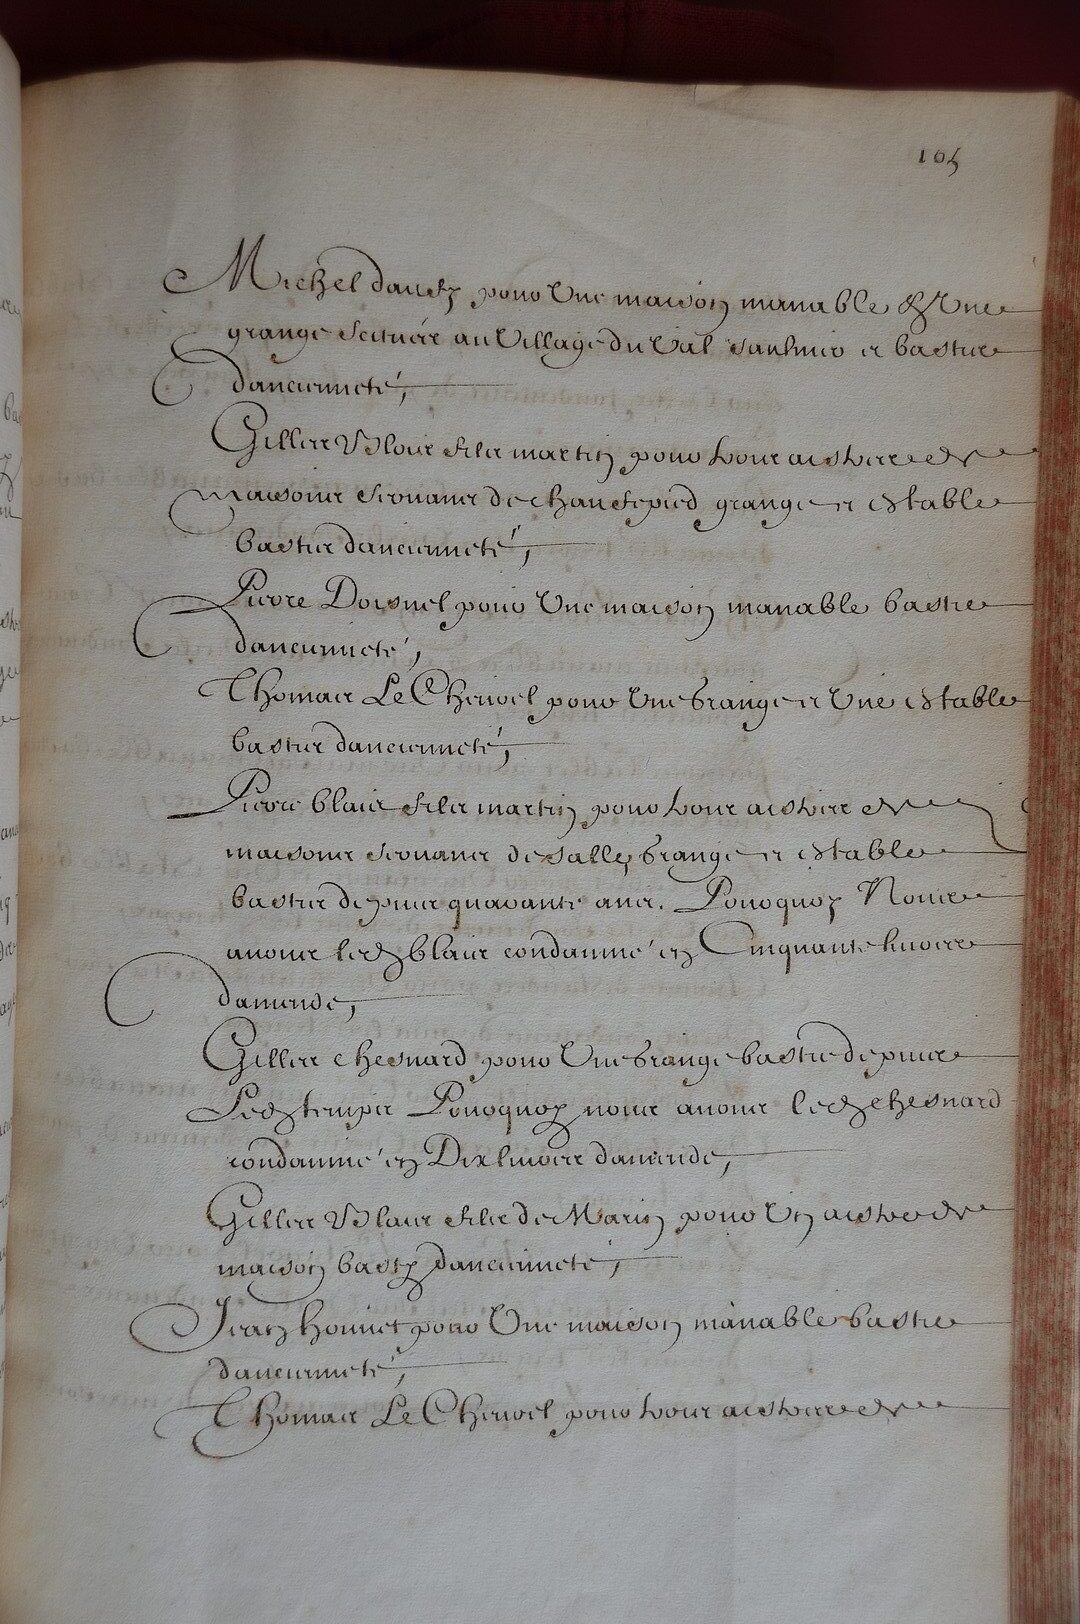 165
Michel dauss pour Une maison manable & Une
grange scituée au Village du Val Saulnier et bastie
danciennete,
Gilles Blais fils martin pour trois aistres de
maisons servans de chaufepied grange et estable
basties danciennete,
Pierre Doisnel pour Une maison manable bastie
danciennete,
Thomas Le Chervel pour Une Grange et Une estable
basties danciennete,
Pierre blais fils martin pour trois aistres de
maisons servans de salle, Grange et estable
basties depuis quarante ans. Pourquoy Nous
avons led blais condamné en Cinquante livres
damende,
Gilles chesnard pour Une Grange bastie depuis
led temps Pourquoy nous avons led chesnard
condamné en Dix livres damende,
Gilles Blais fils de Marin pour Un aistre de
maison basty danciennete,
Jean honnet pour Une maison manable bastie
danciennete,
Thomas Le Chervel pour trois aistres de